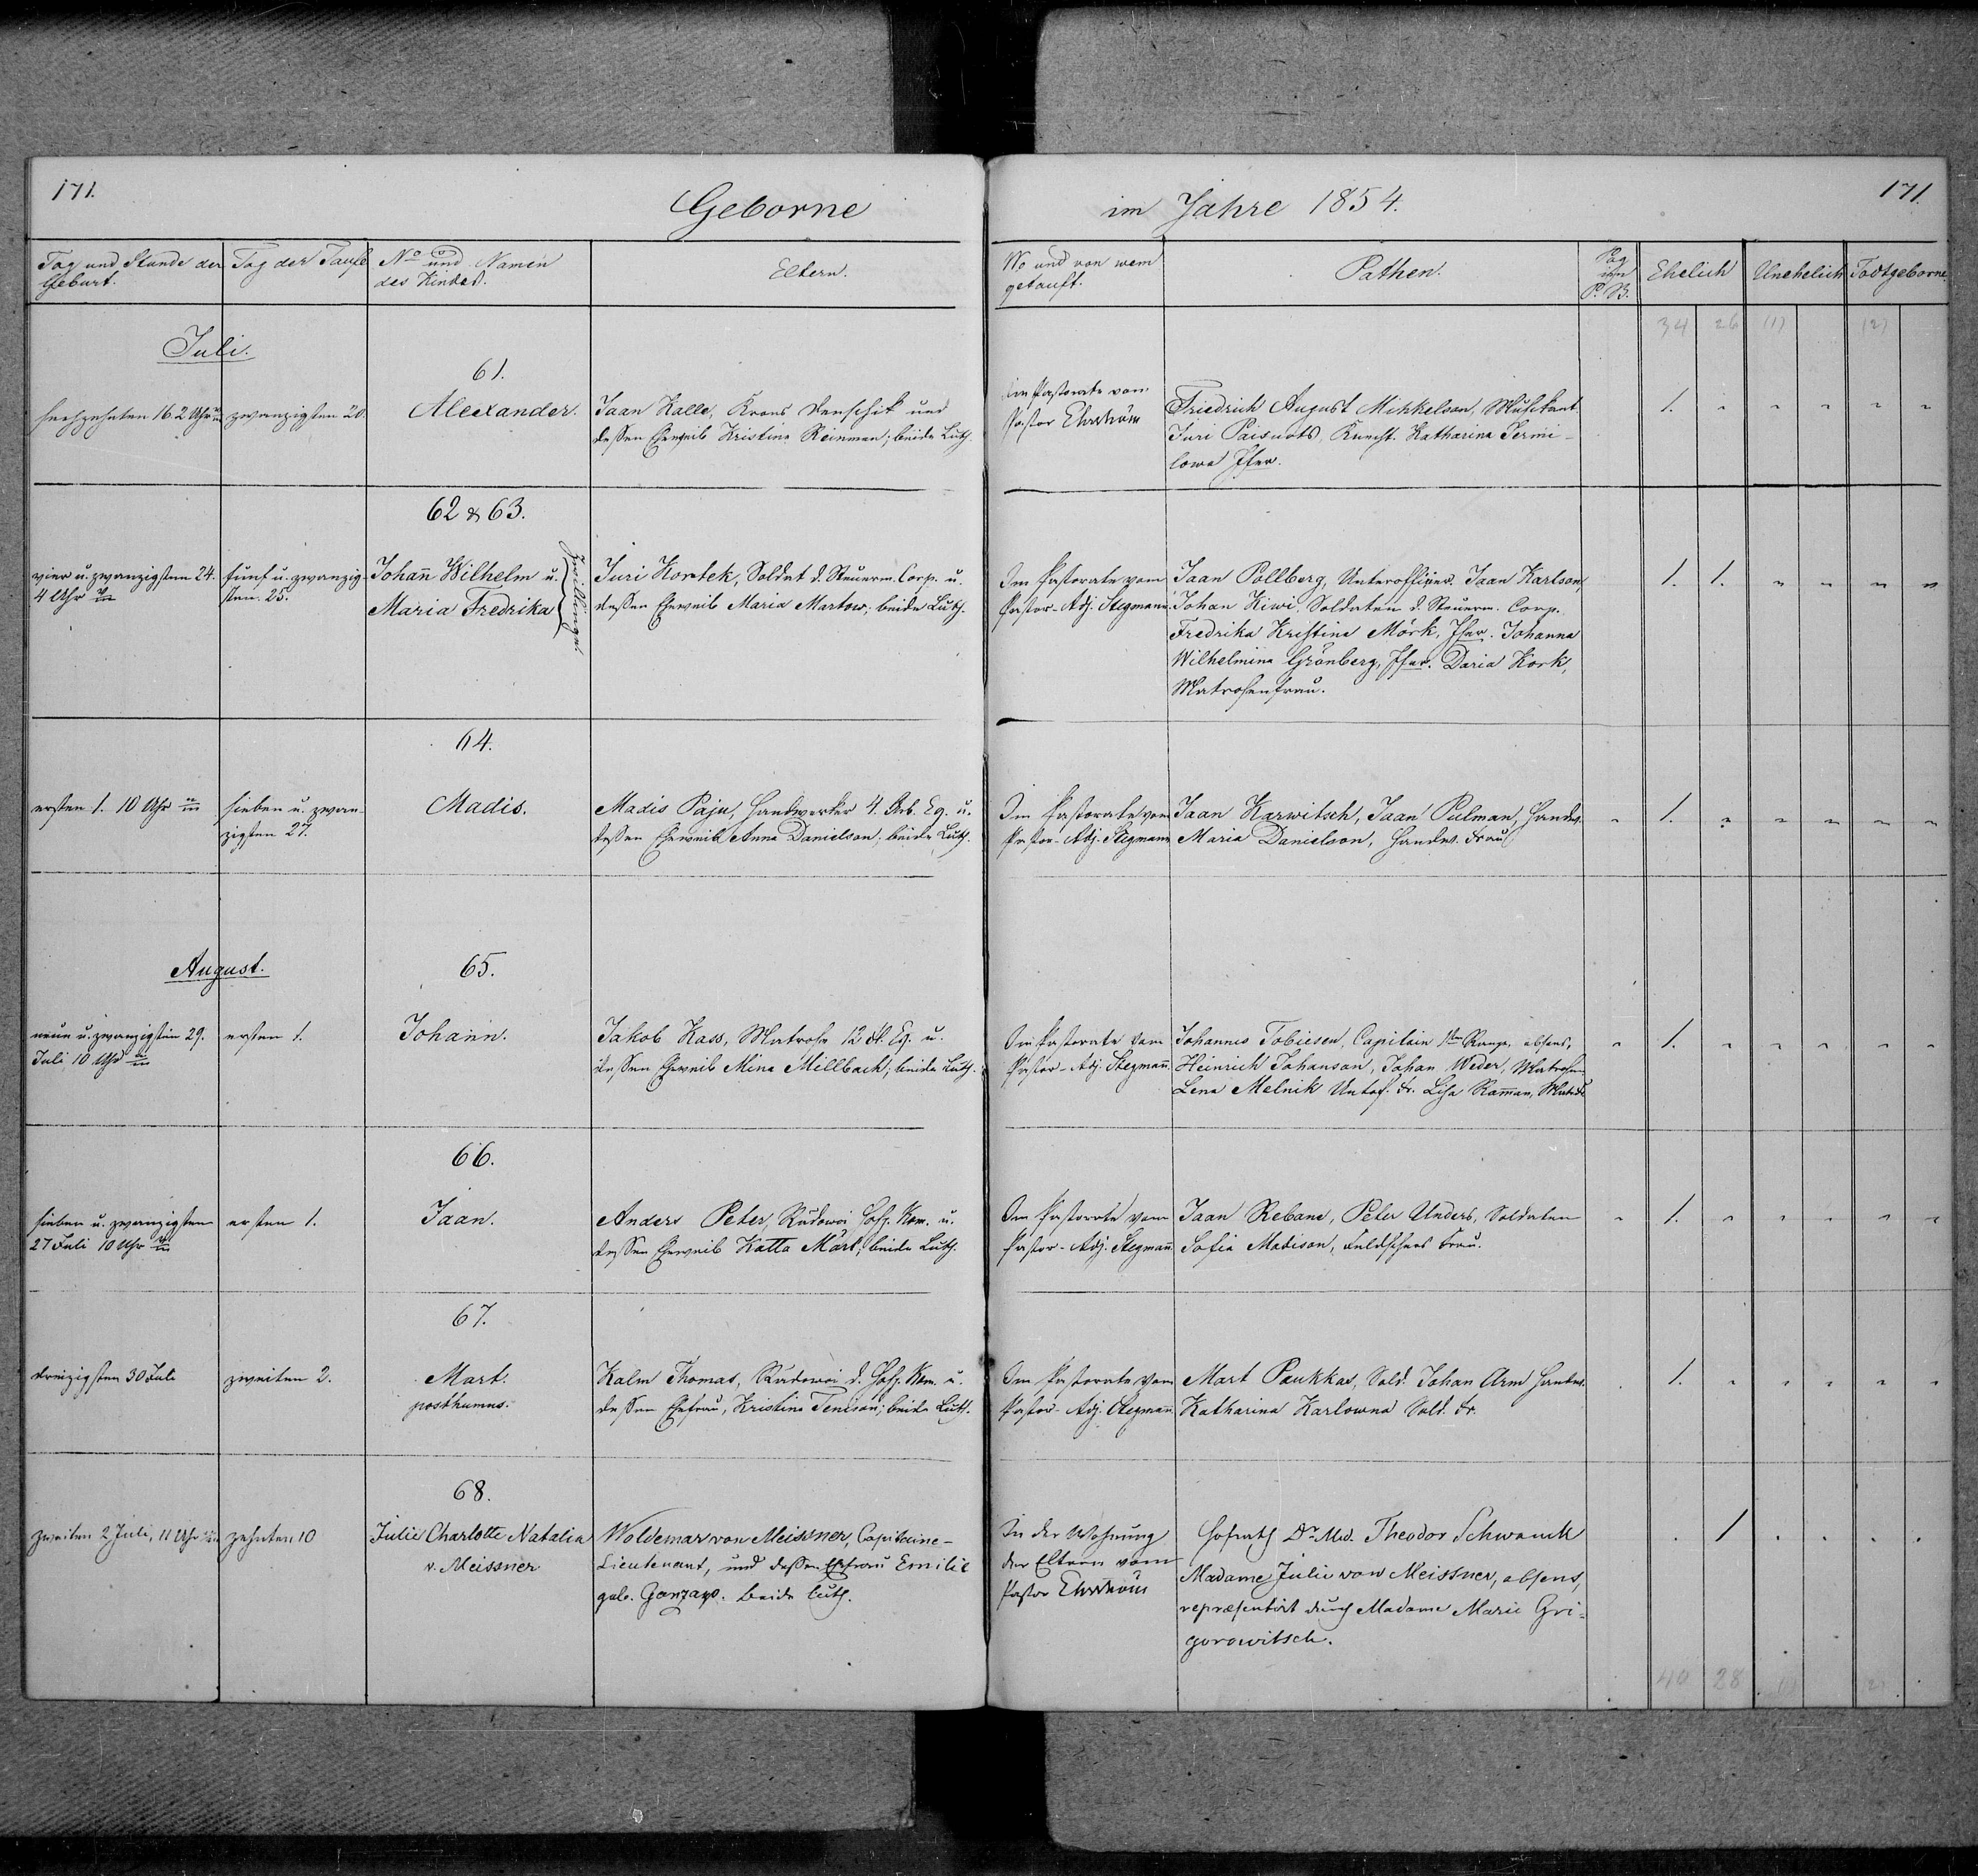 171.
Geborne
im Jahre 1854.
171
Tag und Stunde der Geburt.
Tag der Taufe
No und Namen des Kindes.
Eltern.
Wo und von wem getauft.
Pathen.
Pag im P. B.
Ehelich
Unehelich
Todtgeborne.
34 26 (1) (2)
Juli.
61.
sechzehnten 16. 2 Uhr
zwanzigsten 20.
Alexander.
Jaan Kalle, Krons Denschik und
dessen Eheweib Kristina Reinman; beide Luth.
Im Pastorate vom
Pastor Ehrström
Friedrich August Mihkelson, Musikant
Juri Paisuots, Knecht. Katharina Jermi-
lowa Jfer.
1. " " " " "
62 & 63.
vier u. zwanzigsten 24.
4 Uhr
fünf u. zwanzig-
sten. 25.
Johan̄ Wilhelm u.
Maria Fredrika
Zwillinge.
Juri Korotek, Soldat d. Steuerm. Corp. u.
dessen Eheweib Maria Martow; beide Luth.
Im Pastorate vom
Pastor-Adj. Stegmann.
Jaan Pollberg, Unteroffizier. Jaan Karlson,
Johan Kiwi. Soldaten d. Steuerm. Corp.
Fredrika Kristina Mörk, Jfer. Johanna
Wilhelmina Grönberg, Jfer. Daria Kork,
Matrosenfrau.
1. 1. " " " "
64.
ersten 1. 10 Uhr
sieben u. zwan-
zigsten 27.
Madis.
Madis Paju, Handwerker 4. Arb. Eq. u.
dessen Eheweib Anna Danielson; beide Luth.
Im Pastorate vom
Pastor-Adj. Stegmann
Jaan Karwitsch, Jaan Pulman, Handw.
Maria Danielson, Handw. Frau
" 1. " " " " "
August.
65.
neun u. zwanzigsten 29.
Juli 10 Uhr
ersten 1.
Johann.
Jakob Kass, Matrose 12 Fl. Eq. u.
dessen Eheweib Mina Millbach; beide Luth.
Im Pastorate vom
Pastor-Adj. Stegman̄.
Johannes Tobiesen, Capitain 1ten Range, absens,
Heinrich Johanson, Johan Weder, Matrosen
Lena Melnik Untof. Fr. Lisa Ram̄an,
" 1. " " " " "
66.
sieben u. zwanzigsten
27 Juli 10 Uhr
ersten 1.
Jaan.
Anders Peter, Rädowoi Hosp. Kom. u.
dessen Eheweib Katta Märt; beide Luth.
Im Pastorate vom
Pastor-Adj. Stegman̄
Jaan Rebane, Peter Unders, Soldaten
Sofia Madison, Feldschers Frau.
" 1. " " " " "
67.
dreizigsten 30 Juli
zweiten 2.
Mart.
posthumus.
Kalm Thomas, Rädowoi d. Hosp. Kom. u.
dessen Ehefrau, Kristina Tenison; beide Luth.
Im Pastorate vom
Pastor-Adj. Stegmann
Mart Paukkas, Sold. Johan Arm Handw.
Katharina Karlowna Sold. Fr.
1. " " " " "
68.
zweiten 2 Juli, 11 Uhr
zehnten 10
Julie Charlotte Natalia
v. Meissner
Woldemar von Meissner, Capitaine-
Lieutenant, und dessen Ehefrau Emilie
geb. Beide luth.
In der Wohnung
der Eltern vom
Pastor Ehrström
Hofrath Dr. Med. Theodor Schwanck
Madame Julie von Meissner, absens,
repræsentirt durch Madame Marie Gri-
gorowitsch.
1
40 28 (1) (2)